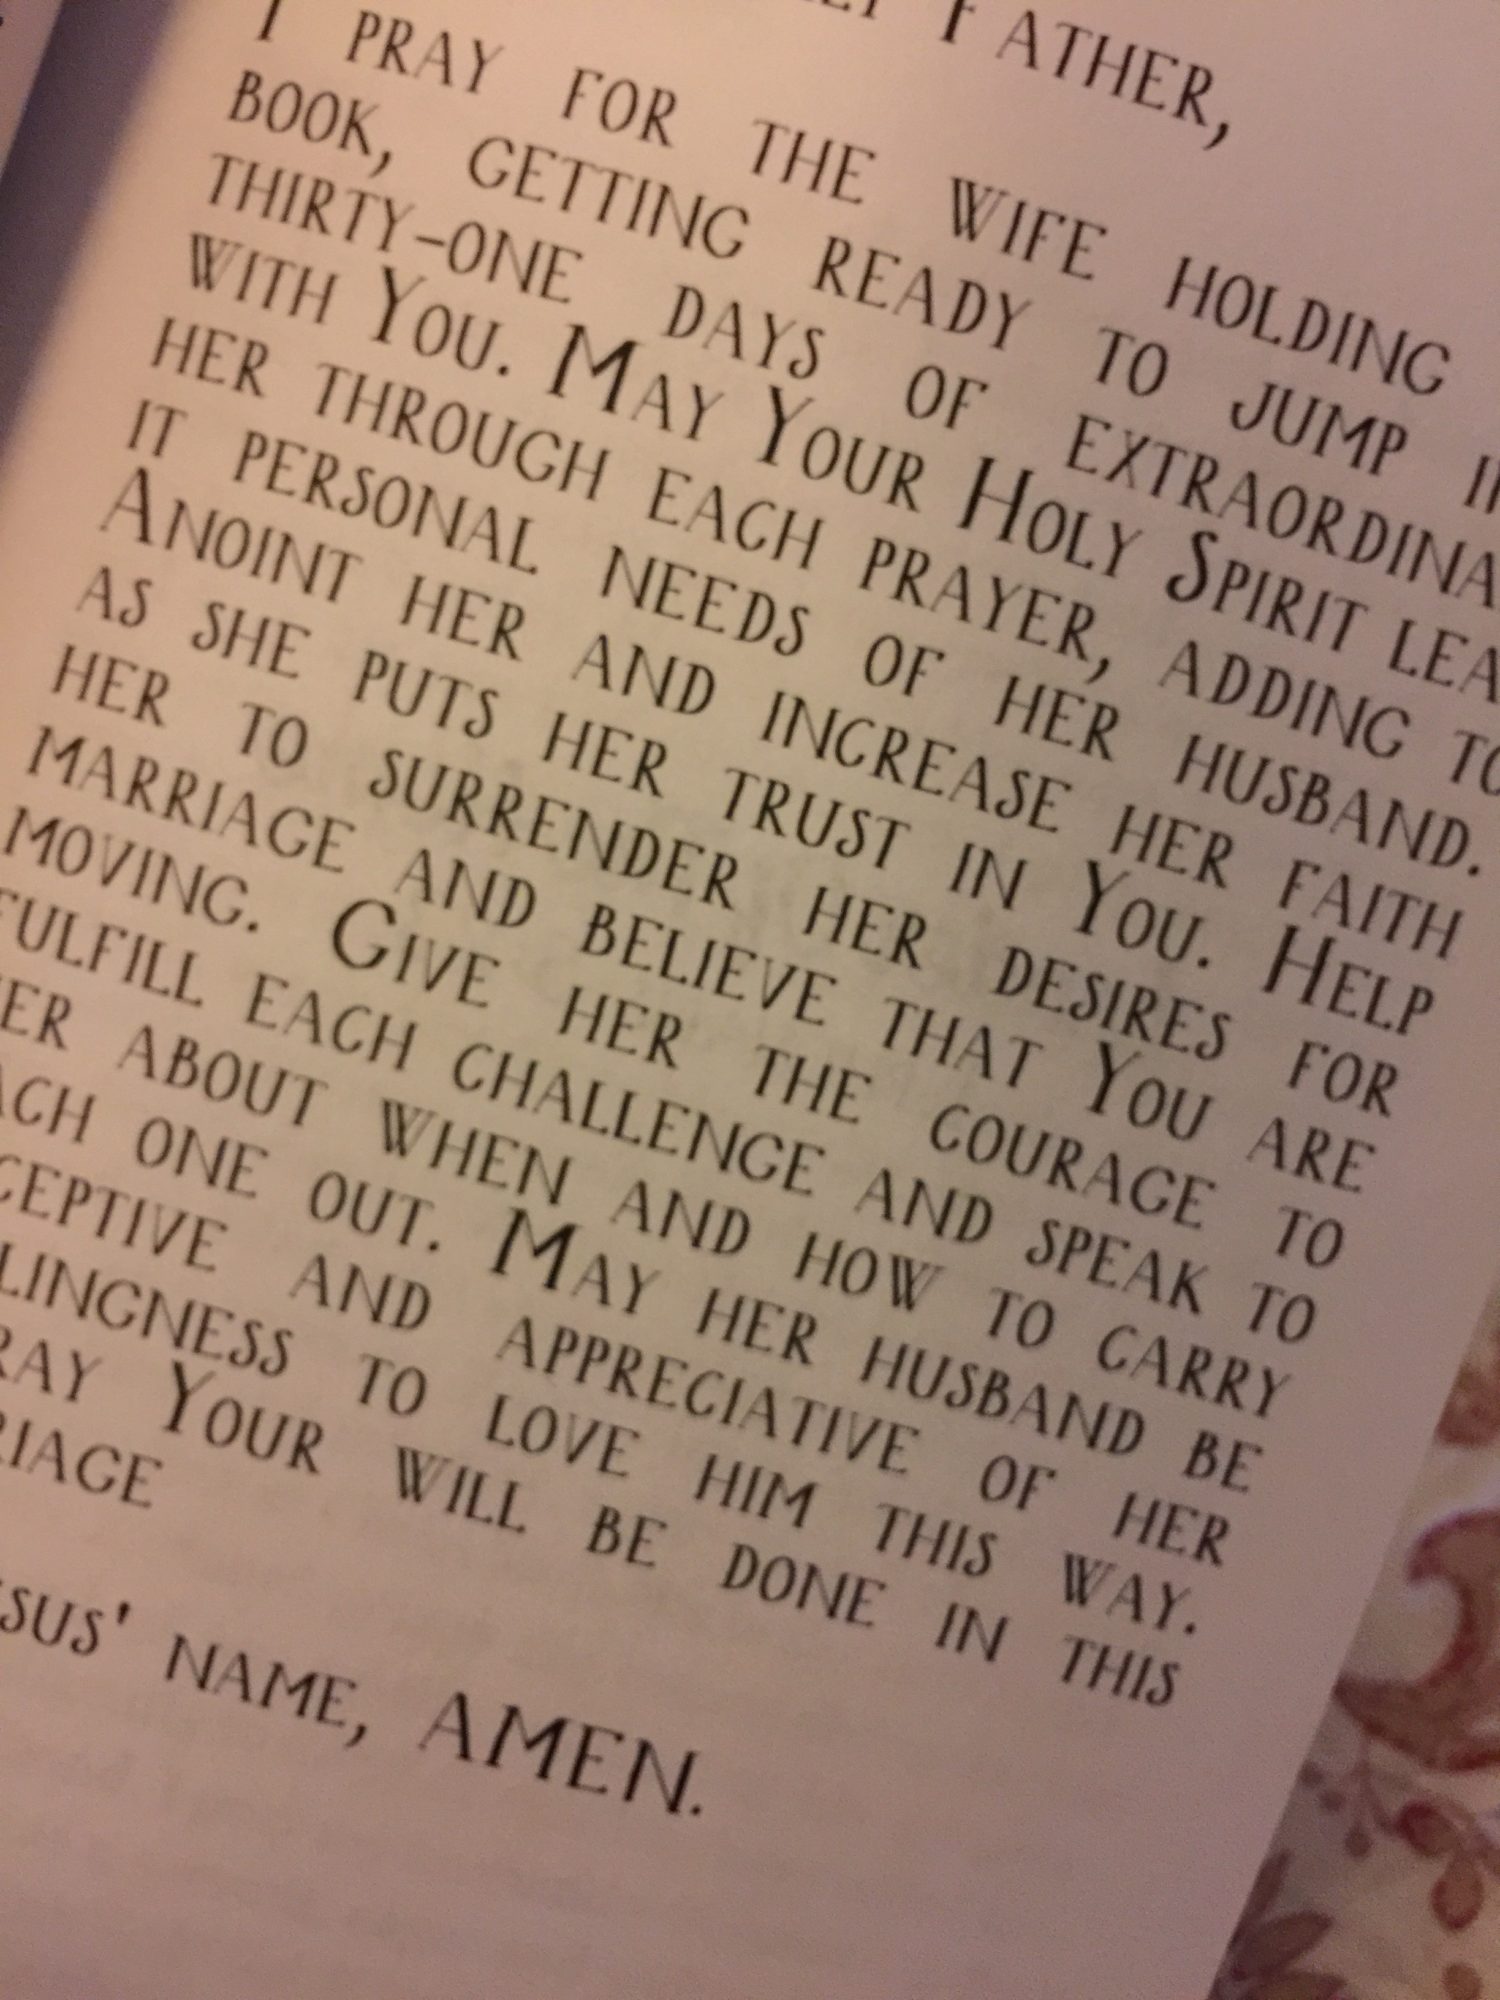 Father,
I PRAY FOR THE WIFE HOLDING
BOOK, GETTING READY TO JUMP
THIRTY-ONE DAYS OF
WITH YOU. MAY YOUR HOLY SPIRIT
HER THROUGH EACH PRAYER, ADDING TO
IT PERSONAL NEEDS OF HER HUSBAND.
ANOINT HER AND INCREASE HER FAITH
AS SHE PUTS HER TRUST IN YOU. HELP
HER TO SURRENDER HER DESIRES FOR
MARRIAGE AND BELIEVE THAT YOU ARE
MOVING. GIVE HER THE COURAGE TO
FULFILL EACH CHALLENGE AND SPEAK TO
ABOUT WHEN AND HOW TO CARRY
ONE OUT. MAY HER HUSBAND BE
AND APPRECIATIVE OF HER
TO LOVE HIM THIS WAY.
YOUR WILL BE DONE IN THIS
NAME, AMEN.